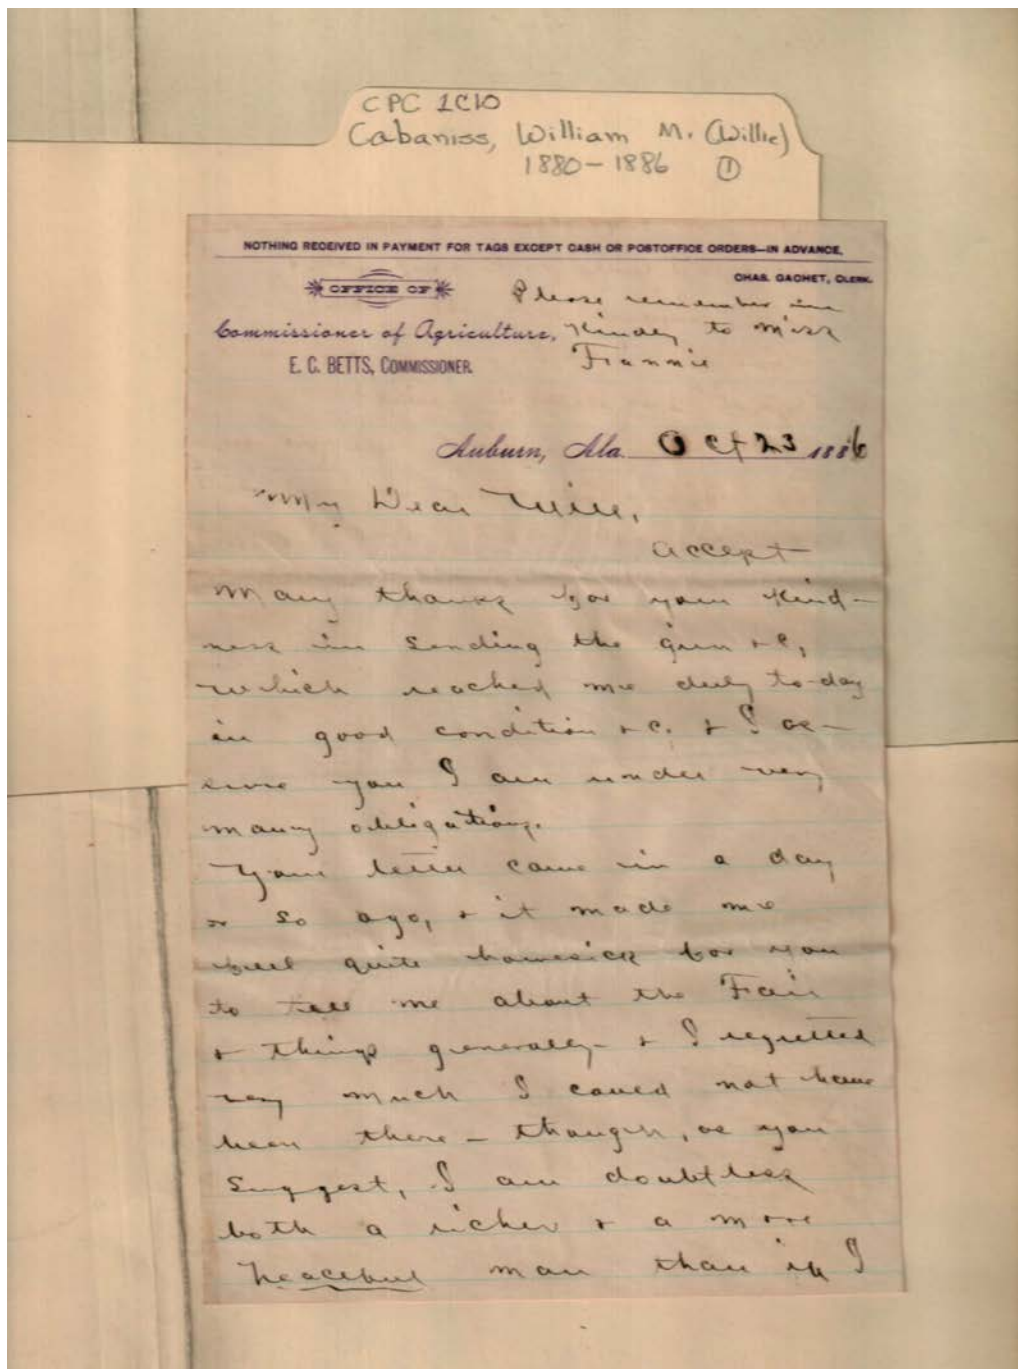 CPC 1C10
Cabaniss, William M. (Willie)
1880-1886 ①
NOTHING RECEIVED IN PAYMENT FOR TAGS EXCEPT CASH OR POSTOFFICE ORDERS—IN ADVANCE.
CHAS. GACHET, CLERK.
OFFICE OF
Please remember me
Commissioner of Agriculture,
Kindly to Miss
E. C. BETTS, COMMISSIONER.
Fannie
Auburn, Ala. Oct 23 1886
My Dear Will,
Accept
many thanks for your kind-
ness in sending the gun &c,
which reached me duly to-day
in good condition &c. & I as-
sure you I am under very
many obligations.
Your letter came in a day
or so ago, & it made me
feel quite homesick for you
to tell me about the Fair
& things generally - & I regretted
very much I could not have
been there - though, as you
suggest, I am doubtless
both a richer & a more
peaceful man than if I